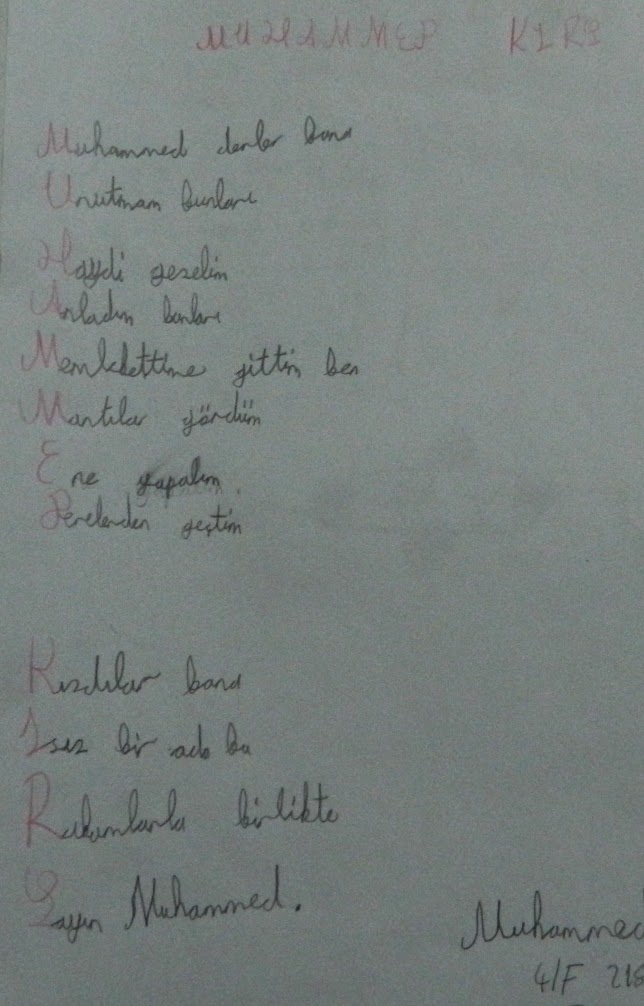 MUHAMMED KIRŞ
Muhammed derler bana
Unutmam bunları
Haydi gezelim
Anladım bunları
Memlekettime gittim ben
Mantılar gördüm
E ne yapalım
Derelerden geçtim
Kızdılar bana
Issız bir ada bu
Rakamlarla birlikte
Şayın Muhammed.
Muhammed
4/F 218